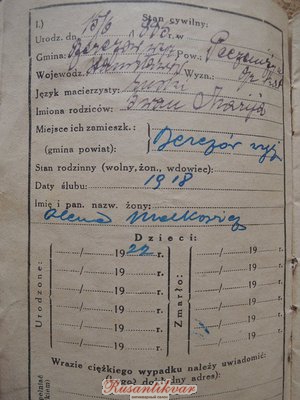 I.) Stan cywilny:
Urodz. dn. 15/6 1 w
Gmina: Berezów wyż Pow.: Peczeniżyn
Wojewódz. Wyzn.:
Język macierzysty: ruski
Imiona rodziców: Iwan Marija
Miejsce ich zamieszk.:
(gmina powiat): Berezów wyż
Stan rodzinny (wolny, żon., wdowiec):
Daty ślubu: 1918
Imię i pan. nazw. żony:
Olena Malkowicz
Dzieci:
Urodzone:
Zmarło:
....../......19 22 r. ....../......19 r.
....../......19 r. ....../......19 r.
....../......19 r. ....../......19 r.
....../......19 r. ....../......19 r.
....../......19 r. ....../......19 r.
....../......19 r. ....../......19 r.
Wrazie ciężkiego wypadku należy uwiadomić:
(kogo? dokładny adres):
Rusantikvar